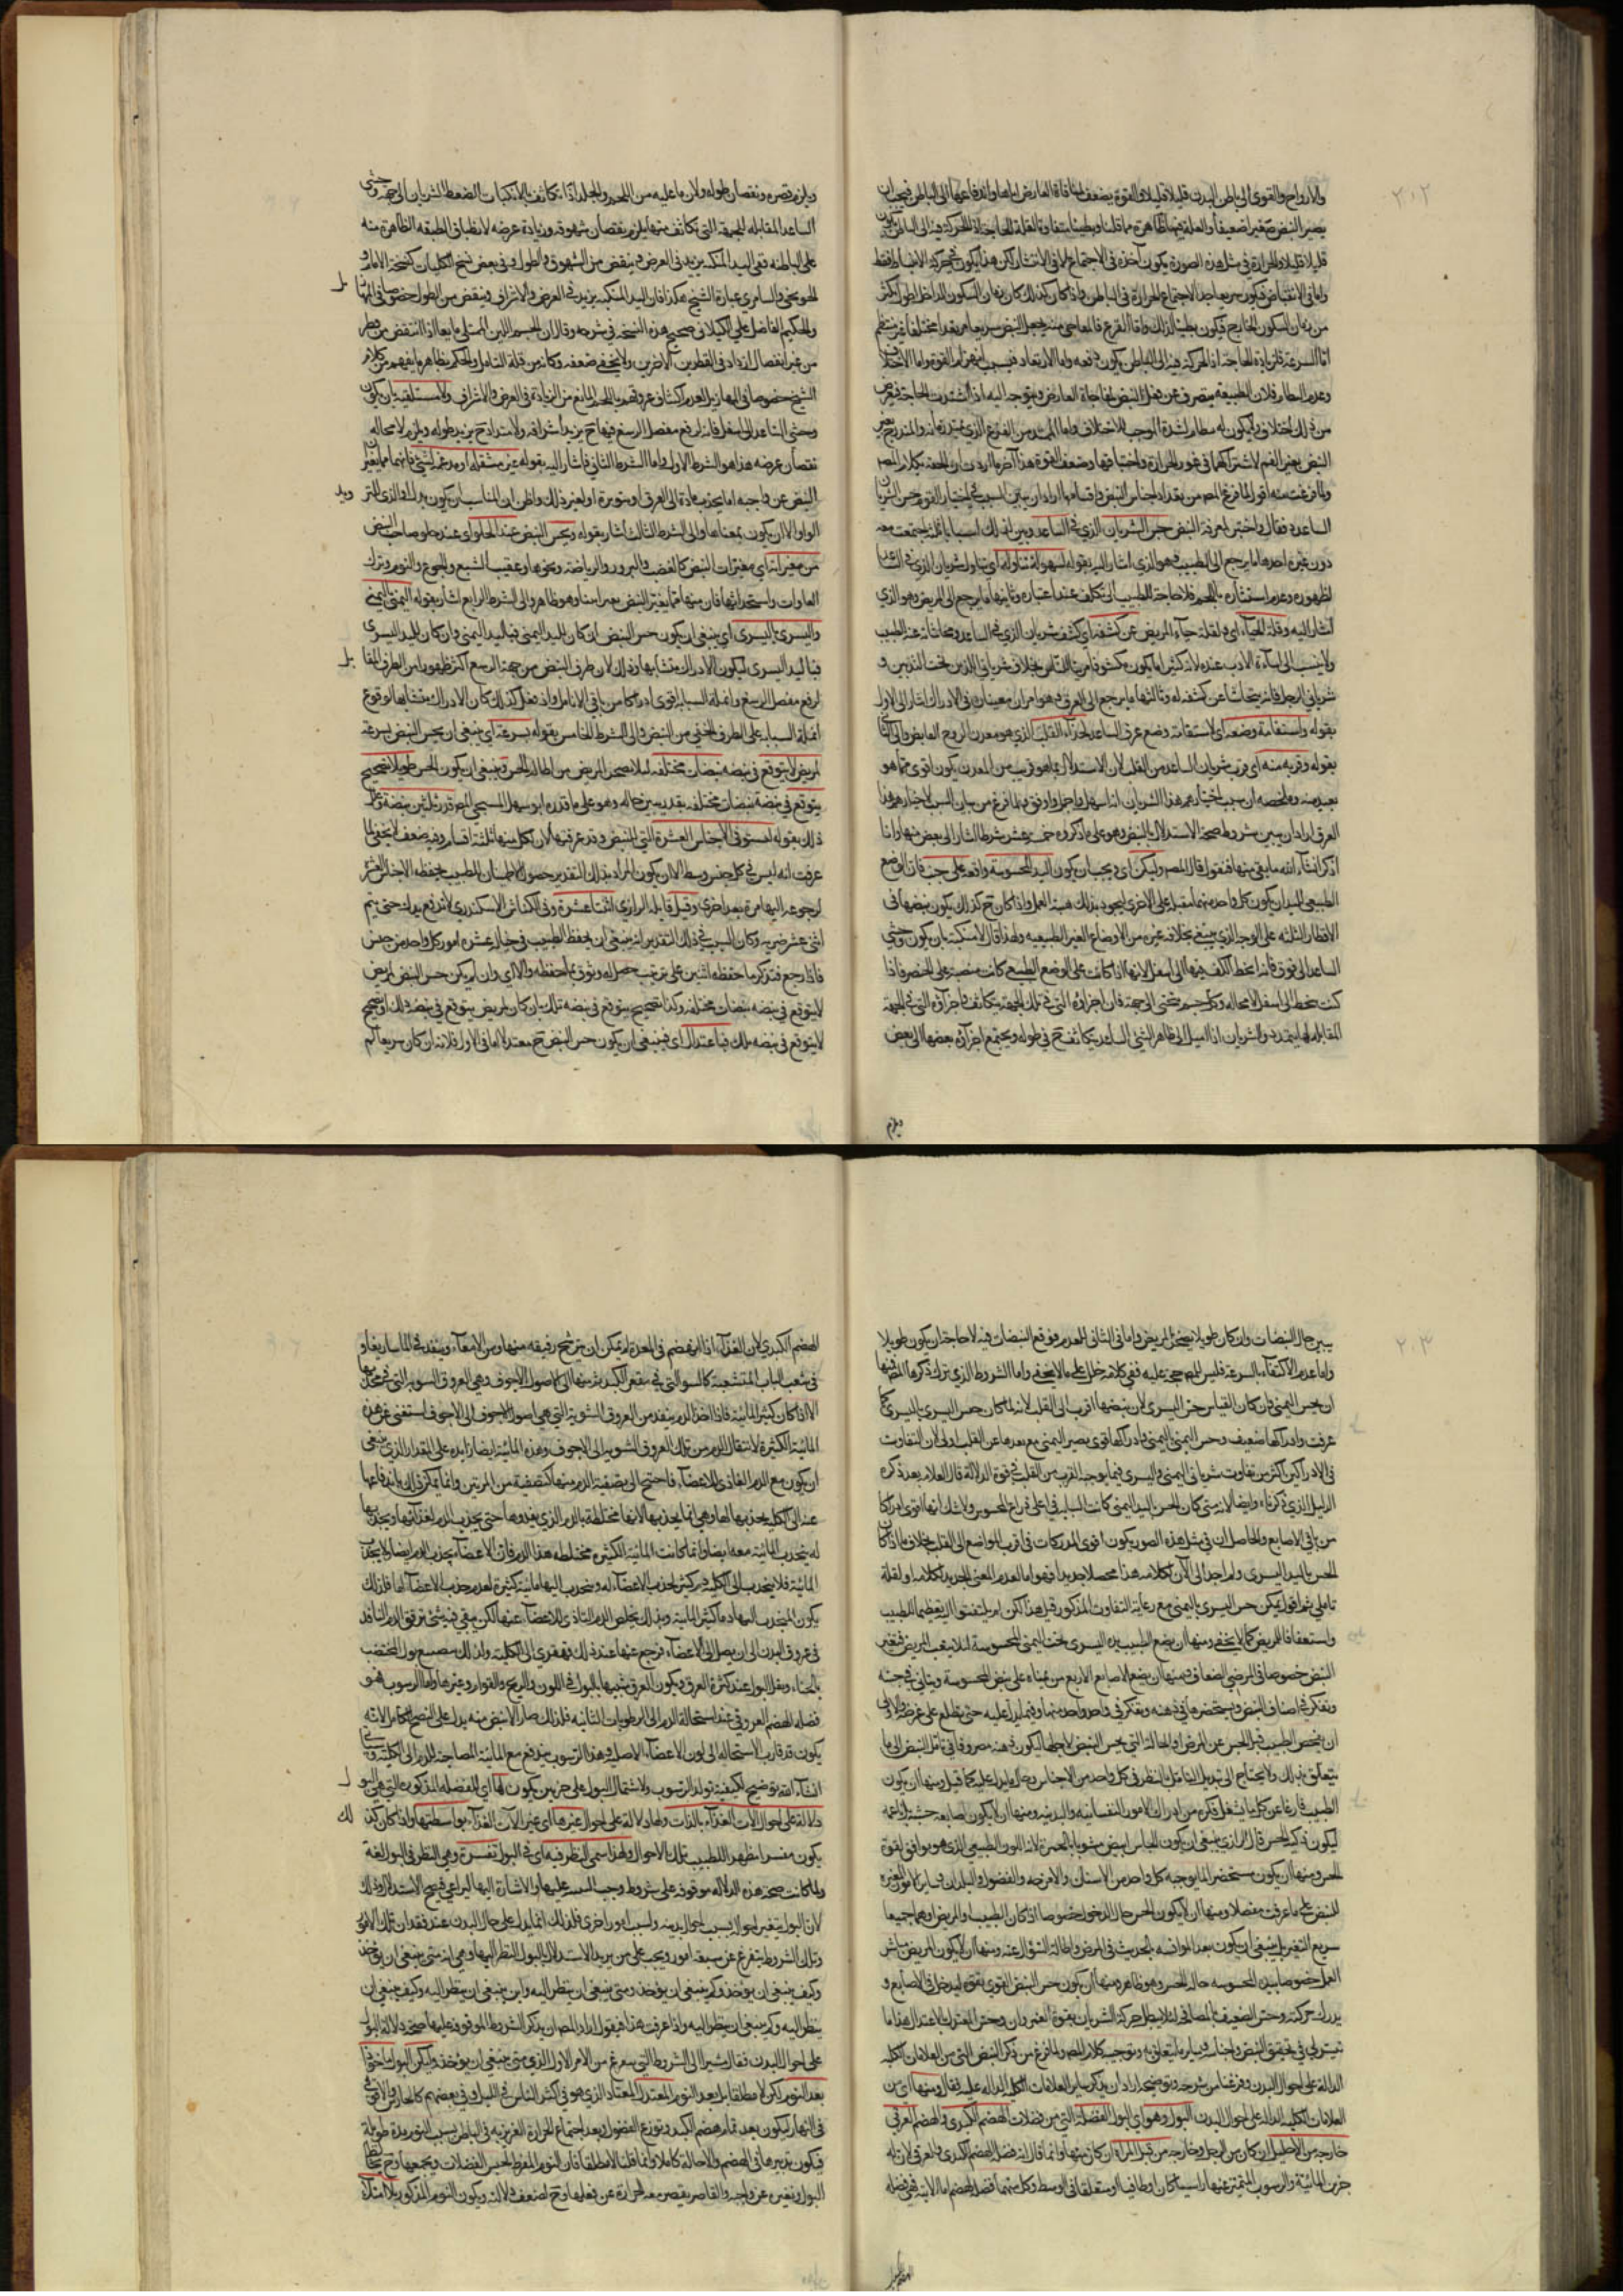 ٢٠٢
والارواح والقوى الى باطن البدن قليلا قليلا والقوة يضعف لمنافاة العارض اياها واندفاعها الى الباطن فيجب ان
يصير النبض صغيرا ضعيفا
قليلا قليلا والحرارة في مثل هذه الصورة يكون آخذة في الاجتماع لا في الانتشار لكن هذا يكون في حركة الانبساط فقط
واما في الانقباض فيكون سريعا جدا لاجتماع الحرارة في الباطن واذا كان كذلك كان زمان السكون الداخل اطول اكثر
من زمان السكون الخارج فيكون بطيئا لذلك واما الفزع فالمفاجي منه يجعل النبض سريعا مرتعدا مختلفا غير منتظم
اما السرعة فلزيادة الحاجة اذ الحركة فيه الى الباطن يكون دفعة واما الارتعاد فبسبب انهزام القوة واما الاختلاف
وعدم النظام فلان الطبيعة ينصرف عن فعل النبض لمفاجاة العارض ويتوجه اليه اذا اشتدت الحاجة فيعرض
من ذلك اختلاف ولا يكون له نظام لشدة الموجب للاختلاف واما الممتد من الفزع الذي يمتد زمانه والمتدرج يغير
النبض تغير الغم لاشتراكهما في غور الحرارة واختناقها وضعف القوة هذا آخر ما اردت ان الحقه بكلام المص
ولما فرغت منه اقول لما فرغ المص من تعداد اجناس النبض واقسامها اراد ان يبين السبب في اختيار القوم جس الشريان
الساعدي فقال واختير لمعرفة النبض جس الشريان الذي في الساعد وبين لذلك اسبابا ثلثة اجتمعت معه
دون غيره احدها ما يرجع الى الطبيب فهو الذي اشار اليه بقوله لسهولة تناوله اي تناول شريان الذي في الساعد
لظهوره وعدم استتاره باللحم فلا حاجة للطبيب الى تكلف عند اعتباره وثانيها ما يرجع الى المريض وهو الذي
اشار اليه وقلة الحياء اي ولقلة حياء المريض عن كشفه اي كشف شريان الذي في الساعد ومحاشاته عند الطبيب
ولا ينسب الى اساءة الادب عنده لانه كثيرا ما يكون مكشوفا من الناس بخلاف شرياني اللذين تحت الثديين و
شرياني الرجل فانه يتحاشا عن كشفه له وثالثها ما يرجع الى العرق فهو امران معينان في الادراك اشار الى الاول
بقوله واستقامة وضعه اي لاستقامة وضع عرق الساعد بحذاء القلب الذي هو معدن الروح النابض والى الثاني
بقوله وقربه منه اي قرب شريان الساعد من القلب لان الاستدلال بما هو قريب من المعدن يكون اقوى مما هو
بعيد منه وملخصه ان سبب اختيارهم هذا الشريان انه اسهل واجمل واوفق ولما فرغ من بيان السبب لاختيارهم هذا
العرق اراد ان يبين شروط صحة الاستدلال بالنبض وهو على ما ذكروه خمسة عشر شرطا اشار الى بعض منها وانا
اذكر ان شاء الله ما بقي منها فنقول قال المص وليكن اي ويجب ان يكون اليد المجسوسة واقعة على جنب فان الوضع
الطبيعي لليدين ان يكون كل واحد منهما مقبلا على الاخرى ليجود بذلك هيئة العمل واذا كان كذلك يكون نبضها في
الاقطار الثلثة على الوجه الذي ينبغي بخلافه غيره من الاوضاع الغير الطبيعية ولهذا قال لا منكبة بان يكون وحشي
الساعد الى فوق فانه ينحط الكف فيها الى اسفل لانها اذا كانت على الوضع الطبيعي كانت منتصبة على الخنصر فاذا
كبت ينحط الى اسفل لا محالة وكل جسم ينحني الى جهة فان اجزاؤه التي في تلك الجهة يتكاثف واجزاؤه التي في الجهة
المقابلة لها يتمدد والشريان اذا اميل الى ظاهر انسي الساعد يتكاثف ح في طوله ويجتمع اجزاؤه بعضها الى بعض
ويلزم
ويلزم قصره ونقصان طوله ولان ما عليه من اللحم والجلد اذا تكاثف بالانكباب انضغط الشريان الى جهة وحشي
الساعد المقابلة للجهة التي تكاثف منها يلزم نقصان شهوقه وزيادة عرضه لانطباق الطبقة الظاهرة منه
على الباطنة ففي اليد المنكبة يزيد في العرض وينقص من الشهوق والطول وفي بعض نسخ الكليات كنسخة الامام و
الخونجي والسامري عبارة الشيخ هكذا فان اليد المنكبة يزيد في العرض والاشراف وينقص من الطول خصوصا في المهازيل
والحكيم الفاضل علي الكيلاني صحح هذه النسخة في شرحه وقال ان الجسم اللين الممتلي مايعا اذا انتقص من قطر
من غير انفصال ازداد في القطرين الاخرين ولا يخفى ضعفه وكانه من قلة التأمل والحكم بظاهر ما يفهم من كلام
الشيخ خصوصا في المهازيل لعدم اكتناف عروقهم باللحم المانع من الزيادة في العرض والاشراف ولا مستلقية بان يكون
وحشي الساعد الى اسفل فانه ارفع مفصل الرسغ فيها ح يزيد اشرافه ولامتداده ح يزيد طوله ويلزم لا محالة
نقصان عرضه هذا هو الشرط الاول واما الشرط الثاني فاشار اليه بقوله غير مستقلة او معتمدة لشيء فانهما مما يغير
النبض عن واجبه اما بجذب مادة الى العرق او بتوتره او لغير ذلك واظن ان المناسب ان يكون بدل او الذي للترديد
الواو الا ان يكون بمعناها والى الشرط الثالث اشار بقوله ويجس النبض عند الخلو اي عند خلو صاحب النبض
من مغيراته اي مغيرات النبض كالغضب والسرور والرياضة ونحوها وعقيب الشبع والجوع والنوم وترك
العادات واستحداثها فان منها ما يغير النبض تغييرا بينا وهو ظاهر والى الشرط الرابع اشار بقوله اليمنى باليمنى
واليسرى باليسرى اي ينبغي ان يكون جس النبض ان كان لليد اليمنى فباليد اليمنى وان كان لليد اليسرى
فباليد اليسرى ليكون الادراك متشابها وذلك لان طرف النبض من جهة الرسغ اكثر ظهورا من الطرف المقابل
لرفع مفصل الرسغ وانملة السبابة اقوى ادراكا من باقي الانامل واذ فعل كذلك كان الادراك متشابها لوقوع
انملة السبابة على الطرف الخفي من النبض والى الشرط الخامس بقوله بسرعة اي ينبغي ان يجس النبض بسرعة
لمريض لا يتوقع في نبضه نبضات مختلفة لئلا يضجر المريض من اطالة الجس وينبغي ان يكون الجس طويلا لصحيح
يتوقع في نبضه نبضات مختلفة بقدر يبين حاله وهو على ما قدره ابو سهل المسيحي المص قدر ثلثين نبضة وعلل
ذلك بقوله لتستوفى الاجناس العشرة التي للنبض وقد عرفتها لان لكل منها ثلثة اقسار وفيه ضعف لا يخفى لما
عرفت انه ليس في كل جنس وسط الا ان يكون المراد بذلك التقدير حصول الاطمئنان للطبيب بحفظه الاجناس العشرة
لرجوعه اليها مرة بعد اخرى وقيل قائله الرازي اثنتا عشرة وفي الكناش الاسكندري لا ترفع يدك حتى يتم
اثنى عشر ضربة وكان السبب في ذلك التقدير انه ينبغي ان يحفظ الطبيب في خياله عشرة امور كل واحد من جنس
فاذا رجع فتذكر ما حفظه اثنين على ترتيب حصل له وثوق بما حفظه والا اي وان لم يكن جس النبض لمريض
لا يتوقع في نبضه نبضات مختلفة وكذا لصحيح يتوقع في نبضه تلك بان كان لمريض يتوقع في نبضه ذلك او لصحيح
لا يتوقع في نبضه ذلك فباعتدال اي فينبغي ان يكون جس النبض ح معتدلا اما في الاول فلانه ان كان سريعا لم
٢٠٣
يبين حال النبضات وان كان طويلا يضجر المريض واما في الثاني لعدم توقع النبضات فيه لا حاجة ان يكون طويلا
واما عدم الاكتفاء بالسرعة فليس للصحة حجة عليه ففي كلامه خلل على ما لا يخفى واما الشروط الذي ترك ذكرها المص فمنها
ان يجس اليمنى وان كان القياس جس اليسرى لان نبضها اقرب الى القلب لانه لما كان جس اليسرى باليسرى كما
عرفت وادراكها ضعيف وجس اليمنى باليمنى وادراكها قوي يصير اليمنى مع بعدها عن القلب اولى لان التفاوت
في الادراكين اكثر من تفاوت شرياني اليمنى واليسرى فيما يوجبه القرب من القلب في قوة الدلالة قال العلامة بعد ذكره
الدليل الذي ذكرناه وايضا لانه متى كان الجس باليد اليمنى كانت السبابة في اعلى ذراع المجسوس ولا شك انها اقوى ادراكا
من باقي الاصابع والحاصل ان في مثل هذه الصور يكون اقوى المدركات في اقرب المواضع الى القلب بخلاف ما اذا كان
الجس باليد اليسرى ولم اجد الى الآن لكلامه هذا محصلا جديدا فهو اما لعدم المعنى الجديد لكلامه او لقلة
تاملي ثم اقول يمكن جس اليسرى باليمنى مع رعاية التفاوت المذكور قبل هذا لكن لم يلتفتوا اليه تعظيما للطبيب
واستخفافا للمريض كما لا يخفى ومنها ان يضع الطبيب يده اليسرى تحت اليمنى المجسوسة لئلا يتعب المريض فيتغير
النبض خصوصا في المرضى الضعاف ومنها ان يضع الاصابع الاربع من يمناه على نبض المجسوسة ويتاني في جسه
ويفكر في اصناف النبض ويستحضرها في ذهنه ويفكر في واحد واحد منها وفيما يدل عليه حتى يطلع على غرضه والاولى
ان يفحص الطبيب قبل الجس عن المرض او الحالة التي يجس النبض لاجلها ليكون ذهنه مصروفا في تامل النبض الى ما
يتعلق بذلك ولا يحتاج الى تبديل التامل النظر في كل واحد من الاجناس وحال ما يدل عليه كما قيل ومنها ان يكون
الطبيب فارغا عن كل ما يشغل فكره من ادراك الامور النفسانية والبدنية ومنها ان لا يكون اصابعه خشنة لا ناعمة
ليكون ذكية الحس قال الرازي ينبغي ان يكون اللباس ابيض مشوبا بالحمرة لانه اللون الطبيعي الذي هو يوافق لقوة
الحس ومنها ان يكون مستحضرا لما يوجبه كل واحد من الاسنان والامزجة والفصول والبلدان وساير الامور المغيرة
للنبض على ما عرفت مفصلا ومنها ان لا يكون الجس حال الدخول خصوصا اذا كان الطبيب او المريض او هما جميعا
سريع التغير بل ينبغي ان يكون بعد الموانسة بالحديث في المرض واطالة السؤال عنه ومنها ان لا يكون المريض مباشر
العمل خصوصا بيده المجسوسة حالة الجس وهو ظاهر ومنها ان يكون جس النبض القوي بقوة ليدخل في الاصابع و
يدرك حركته وجس الضعيف بالملاقي لئلا يبطل حركة الشريان بقوة الغمز وان وجس المعتدل بالاعتدال هذا ما
تيسر لي في تحقيق النبض واجناسه وبيان ما يتعلق به وتوجيه كلام المص ولما فرغ من ذكر النبض التي من العلامات الكلية
الدالة على احوال البدن وفرغنا من شرحه وتوضيحه اراد ان يذكر ساير العلامات الكلية الدالة عليه فقال ومنها اي من
العلامات الكلية الدالة على احوال البدن البول وهو اي البول الفضلة التي من فضلات الهضم الكبدي والهضم العرقي
خارجة من الاحليل ان كان من الرجل وخارجة من قبل المراة ان كان منها وانما قال انه فضل الهضم الكبدي والعرقي لان له
جزءين المائية والرسوب المتميز عنها راسبا كان او طافيا او متعلقا في الوسط وكل منهما فضلة الهضم اما المائية فهي فضلة
الهضم الكبدي
الهضم الكبدي لان الغذاء اذا انهضم في المعدة لم يمكن ان يترشح رقيقه منها ومن الامعاء وينفذ في الماساريقا و
في شعب الباب المتشعبة كالسواقي في مقعر الكبد ثم منها الى الاصول الاجوف وهي العروق الشعرية التي في محدبها
الا اذا كان كثير المائية فاذا انفصل الدم ينفذ من العروق الشعرية التي هي اصول الاجوف الى الاجوف استغنى عن هذه
المائية الكثيرة لانتقال الدم من تلك العروق الشعرية الى الاجوف وهذه المائية ايضا زايدة على المقدار الذي ينبغي
ان يكون مع الدم الغاذي للاعضاء فاحتيج الى تصفية الدم منها كتصفية من المرتين وانما يمكن ذلك باندفاعها
عنه الى الكلية بجذبها اياها وهي انما يجذبها لانها مختلطة بالدم الذي يغذوها حتى يجذب الدم لغذائها ويجذبها
له ينجذب المائية معه ايضا وانما كانت المائية الكثيرة مختلطة هذا الدم فان الاعضاء يجذب الدم ايضا ولا يجذب
المائية فلا ينجذب الى الكلية دم كثير لجذب الاعضاء له وينجذب اليها مائية كثيرة لعدم جذب الاعضاء لها فلذلك
يكون المنجذب اليها دما كثير المائية وبذلك يخلص الدم الغاذي للاعضاء عنها لكن يبقى فيه شيء يرقق الدم النافذ
في عروق البدن الى ان يصل الى الاعضاء فيرجع عنها عند ذلك قهقرى الى الكلية ولذلك يصبغ بول المختضب
بالحناء ويقل البول عند كثرة العرق ويكون العرق شبيها بالبول في اللون والريح والقوام وغيرها واما الرسوب فهو
فضلة الهضم العروقي عند استحالة الدم الى الرطوبات الثانية فلذلك صار الابيض منه يدل على النضج الكامل لانه
يكون قد قارب الاستحالة الى لون الاعضاء الاصلية وهذا الرسوب يندفع مع المائية المصاحبة للدم الى الكلية وسيأتي
ان شاء الله توضيح لكيفية تولد الرسوب ولاشتمال البول على جزءين يكون لها اي للفضلة المذكورة التي هي البول
دلالة على احوال آلات الغذاء بالذات ولها دلالة على احوال غيرها اي غير آلات الغذاء بواسطتها واذا كان كذلك
يكون مفسرا مظهرا للطبيب تلك الاحوال ولهذا سمي النظر فيه اي في البول تفسرة وهي النظر في البول لغة
ولما كانت صحة هذه الدلالة موقوفة على شروط وجب التنبيه عليها والاشارة اليها ليراعي فيصح الاستدلال وذلك
لان البول يتغير احواله بسبب احوال بدنية ولسبب امور اخرى فلذلك انما يدل على حال البدن عند فقدان تلك الامور
وتلك الشروط يتفرع عن سبعة امور ويجب على من يريد الاستدلال بالبول النظر اليها وهي انه متى ينبغي ان يؤخذ
وكيف ينبغي ان يؤخذ وكم ينبغي ان يؤخذ ومتى ينبغي ان ينظر اليه واين ينبغي ان ينظر اليه وكيف ينبغي ان
ينظر اليه وكم ينبغي ان ينظر اليه واذا عرفت هذا فيقول اراد المص ان يذكر الشروط الموقوفة عليها صحة دلالة البول
على احوال البدن فقال مشيرا الى الشروط التي يتفرع من الامر الاول الذي متى ينبغي ان يؤخذ وليكن البول ماخوذا
بعد النوم لكن لا مطلقا بل بعد النوم المعتدل المعتاد الذي هو في اكثر الناس في الليل وفي بعضهم كالحارس والافعى
في النهار ليكون بعد تمام هضم الكبد وتوزع الفضول وبعد اجتماع الحرارة الغريزية في الباطن بسبب النوم مدة طويلة
فيكون تدبيرها في الهضم والاحالة كاملا وانما قلنا لا مطلقا فان النوم المفرط يحبس الفضلات ويجمعها وح يخالط
البول ويغيره عن واجبه والقاصر يقصر معه الحرارة عن فعلها وح لضعف دلالته ويكون النوم المذكور بلا امتلاء